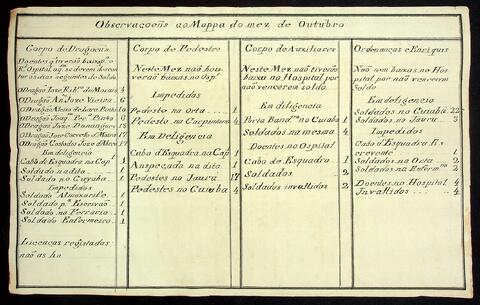 Observaçoens ao Mappa do mez de Outubro
Corpo de Dragoens
Doentes q̃ tiverão baixa pª o
Rl. Ospital aq̃ se devem descon
tar os dias seguintes do Soldo
O Dragão Joze Rib.º de Moraes 4
O Dragão An.t Joze Vieira 6
O Dragão Joaq.m Fer.ª Pinto 6
O Dragão Joze Domingues 13
O Dragão Joze Correa 17
O Dragão Custodio Joze 17
Em deligencia
Cabo de Esquadra na Cap.l 1
Soldado na dita 1
Soldado no Cuyaba 1
Impedidos
Soldado Almoxarife 1
Soldado pª Escrivão 1
Soldado na Ferraria 1
Soldado Enfermeiro 1
Licenças registadas
não as ha
Corpo de Pedestre
Neste Mez não hou
verão baixas no Osp.l
Impedidos
Pedeste na Orta 1
Pedeste na Carpintaria 4
Em Deligencia
Cabo d'Esquadra na Cap.l 1
Anspeçada na dita 1
Pedestes no Jaurú 17
Pedestes no Cuiabá 4
Corpo de Auxiliares
Neste Mez não tiverão
baixa no Hospital por
não vencerem soldo
Em diligencia
Porta Band.ra no Cuiabá 1
Soldados na mesma 4
Doentes no Ospital
Cabo de Esquadra 1
Soldados 2
Soldados invallidos 2
Ordenanças e Henriqus
Não tem baixas no Hos
pital por não vencerem
Soldo
Em deligencia
Soldados no Cuiaba 22
Soldados no Jauru 3
Impedidos
Cabo d'Esquadra Es
crevente 1
Soldados na Orta 2
Soldados na Enferm.ª 2
Doentes no Hospital 4
Invallidos 4